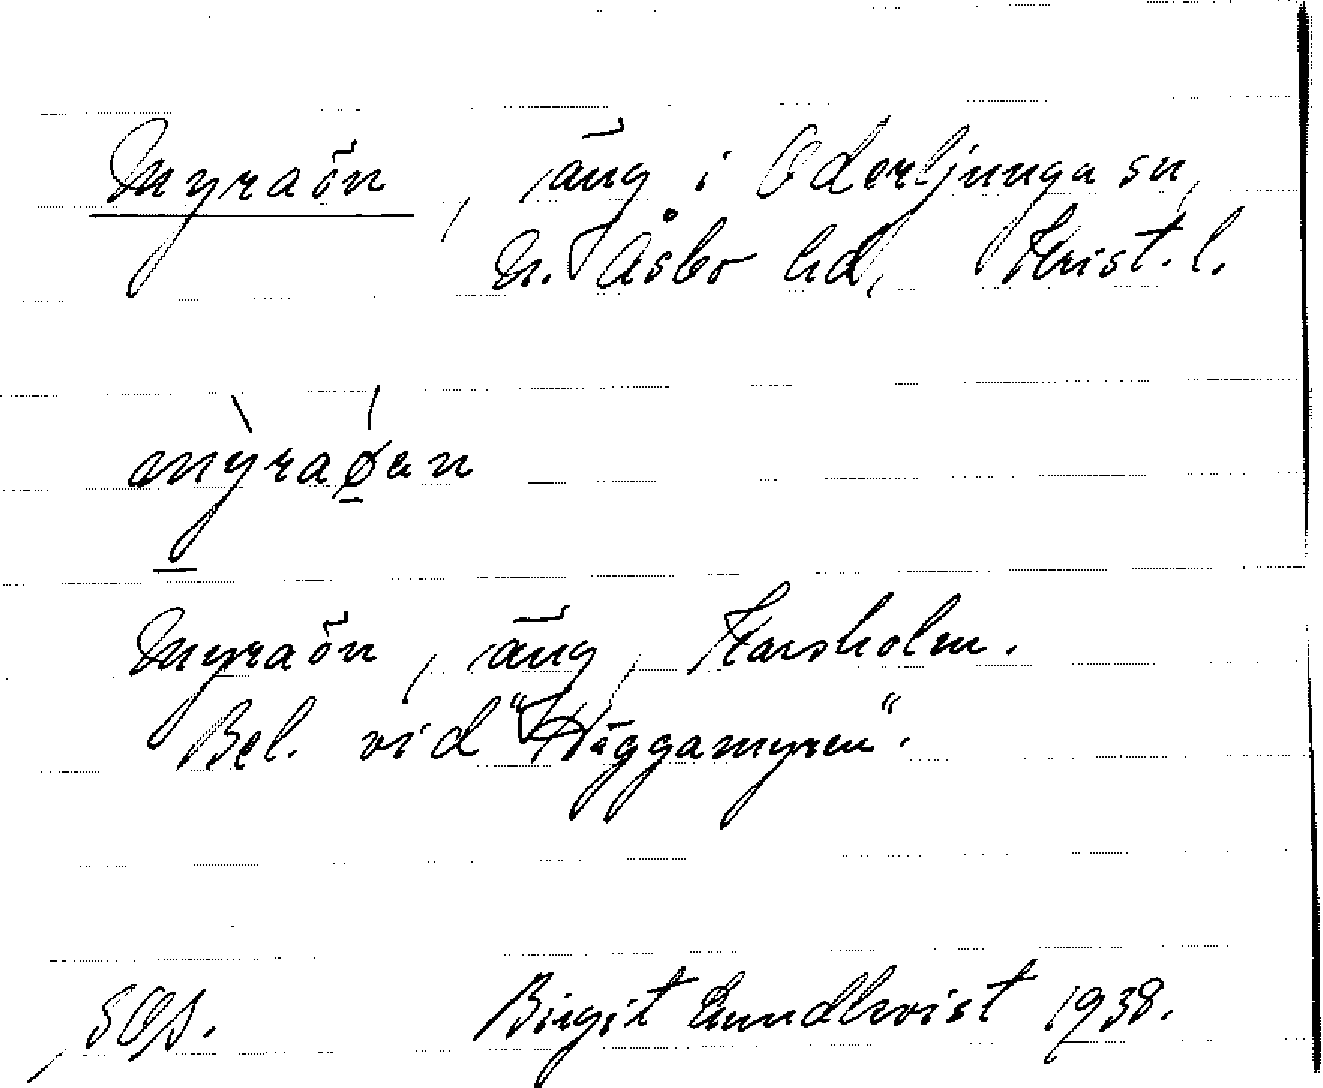 Myraön, äng i Oderljunga sn,
N. Åsbo hd, Krist. l.
myraøen
Myraön, äng, Karsholm.
Bel. vid "Häggamyren".
SOS. Birgit Lundkvist 1938.